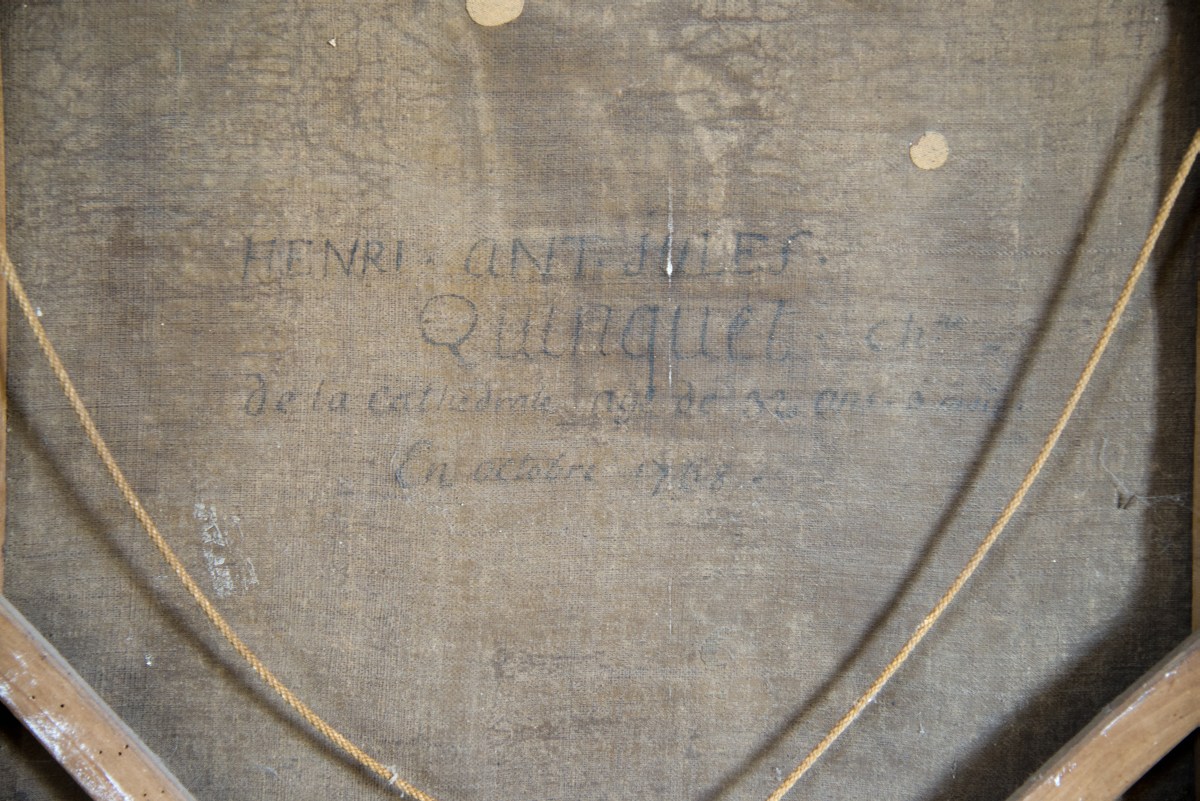 HENRI . ANT. JULES .
Quinquet . Ch.ne
de la Cathédrale, agé de 32 ans
En octobre 1768 .